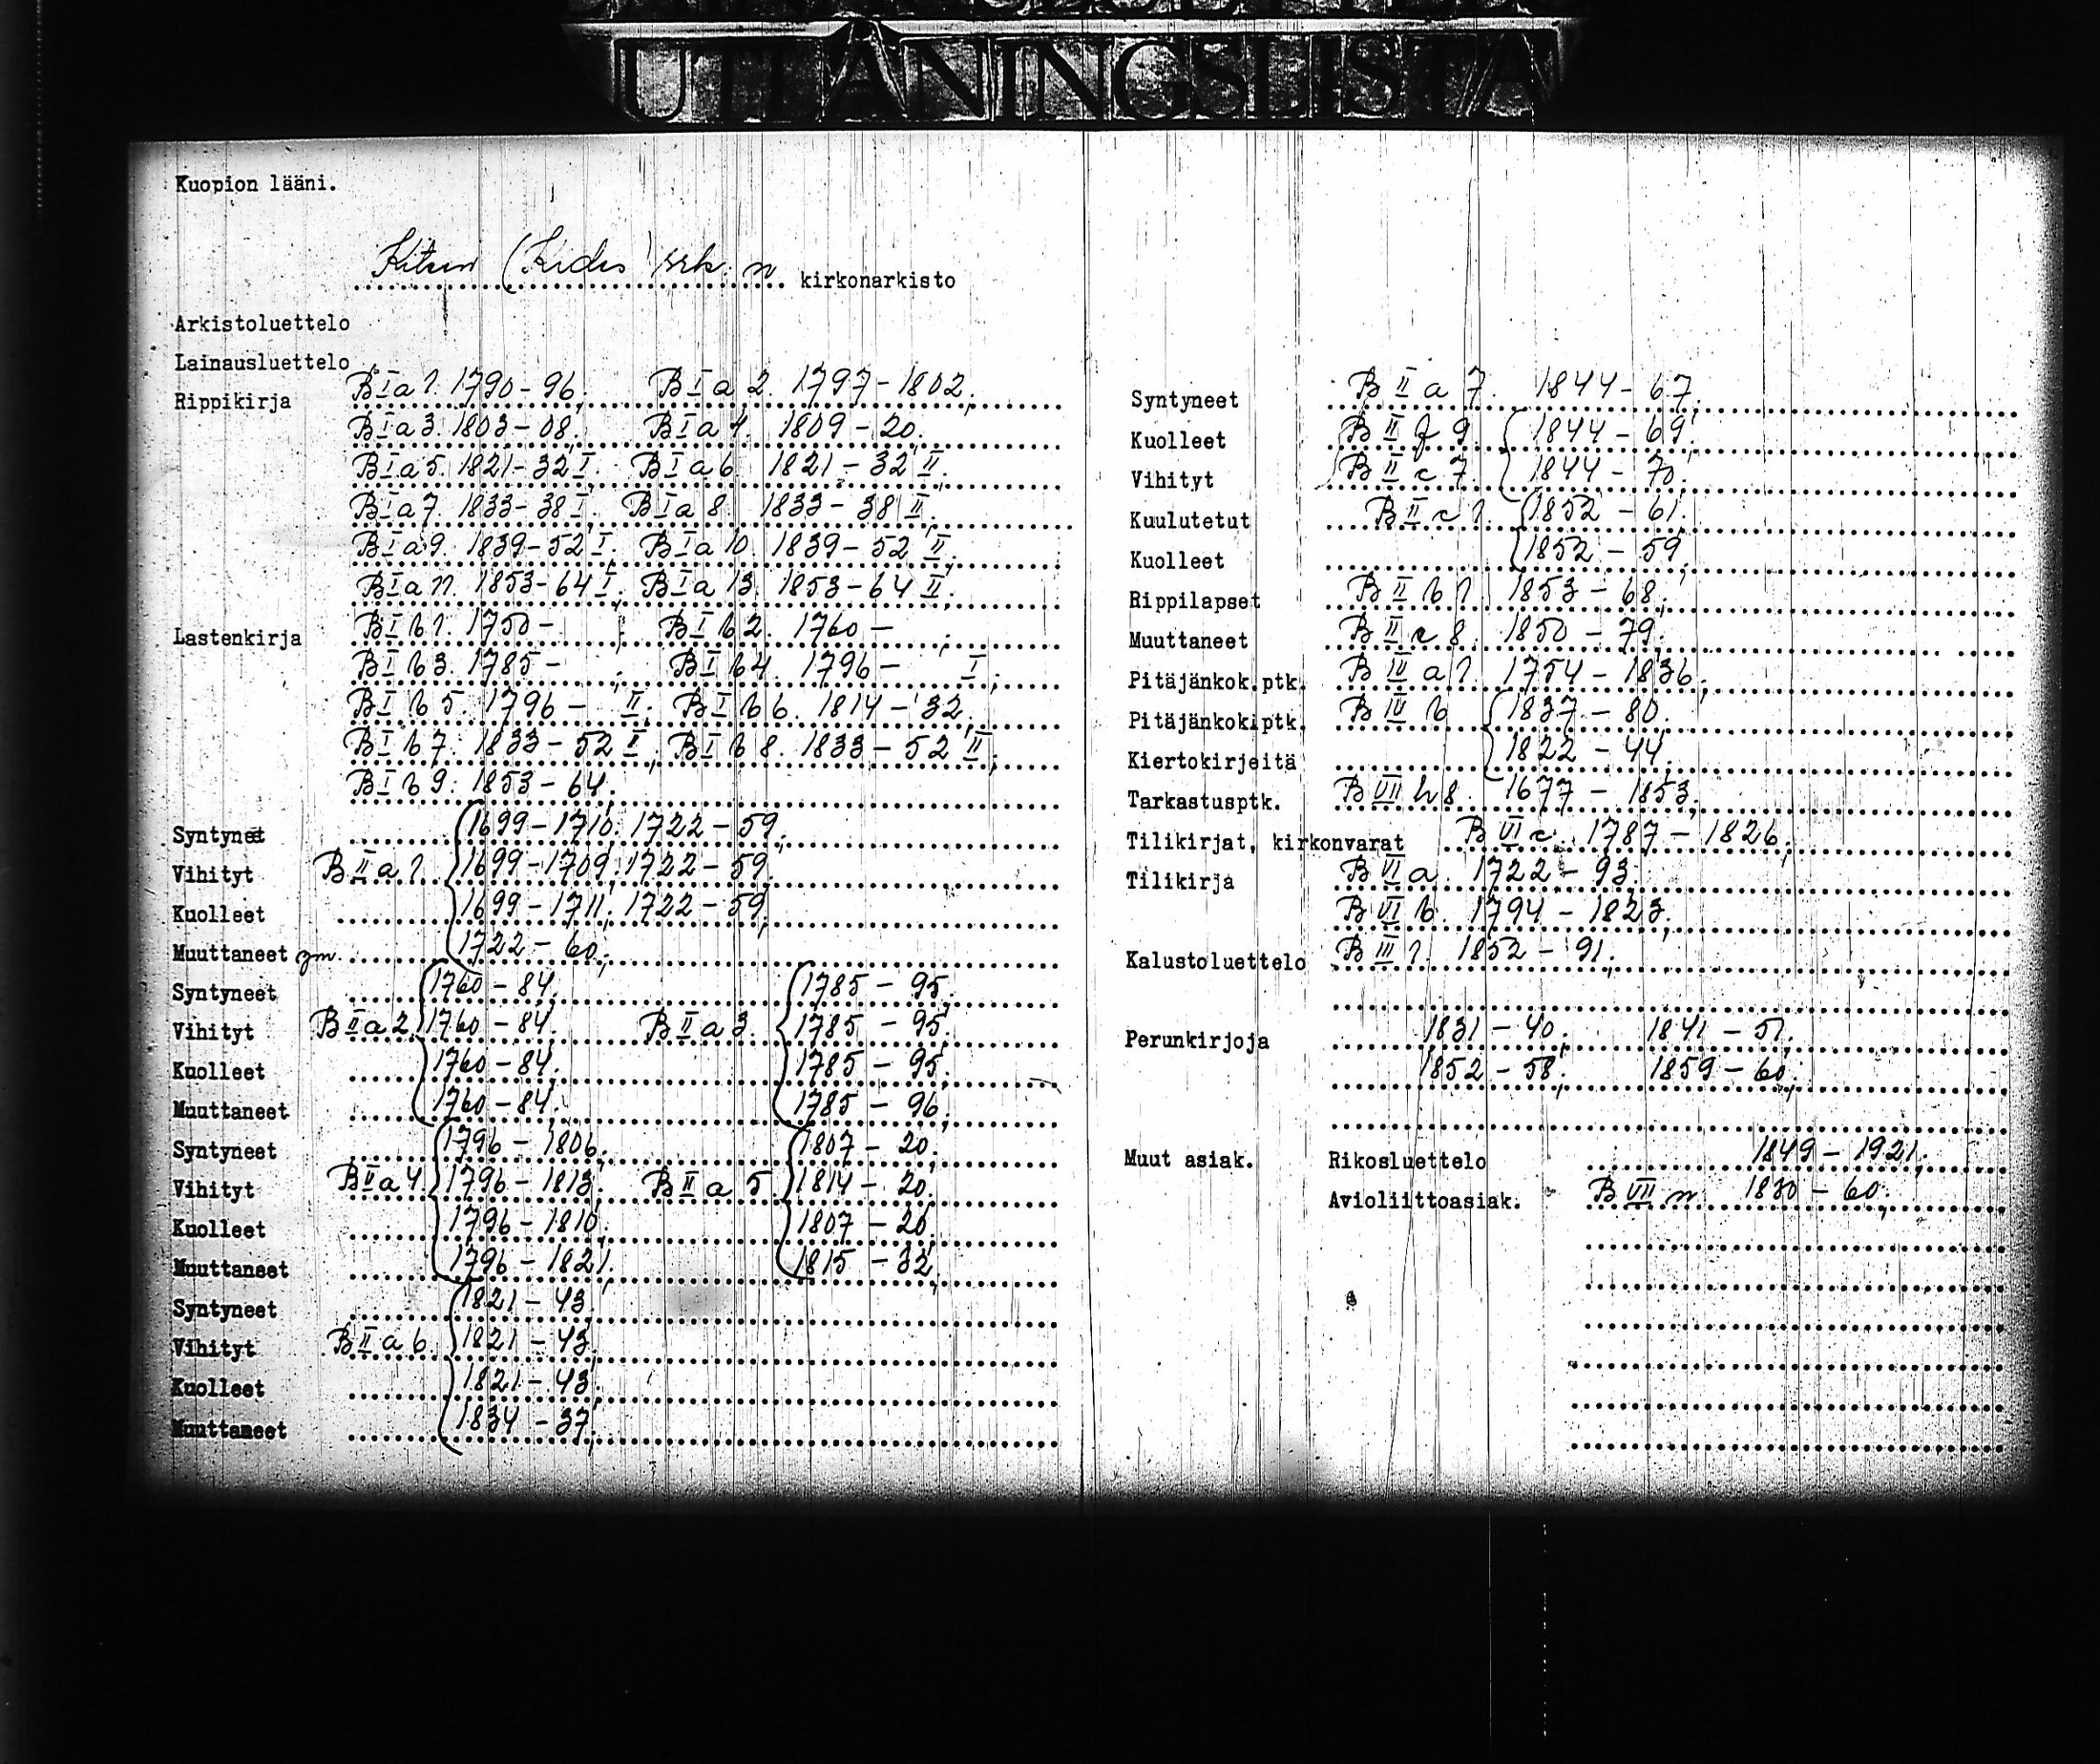 UTLÅNINGSLISTA
Kuopion lääni.
Kiteen (Kides) srk:n kirkonarkisto
Arkistoluettelo
Lainausluettelo
Rippikirja B I a 1. 1790-96; B I a 2. 1797-1802;
B I a 3. 1803-08; B I a 4. 1809-20;
B I a 5. 1821-32 I; B I a 6. 1821-32 II;
B I a 7. 1833-38 I; B I a 8. 1833-38 II;
B I a 9. 1839-52 I; B I a 10. 1839-52 II;
B I a 11. 1853-64 I; B I a 13. 1853-64 II;
Lastenkirja B I b 1. 1750- ; B I b 2. 1760- ;
B I b 3. 1785- ; B I b 4. 1796- I;
B I b 5. 1796- II; B I b 6. 1814-32;
B I b 7. 1833-52 I; B I b 8. 1833-52 II;
B I b 9. 1853-64.
Syntyneet 1699-1710; 1722-59;
Vihityt B II a 1 1699-1709; 1722-59;
Kuolleet 1699-1711; 1722-59;
Muuttaneet ym. 1722-60;
Syntyneet 1760-84; 1785-95;
Vihityt B II a 2 1760-84; B II a 3. 1785-95;
Kuolleet 1760-84; 1785-95;
Muuttaneet 1760-84; 1785-96;
Syntyneet 1796-1806; 1807-20;
Vihityt B II a 4. 1796-1813; B II a 5 1814-20;
Kuolleet 1796-1810; 1807-20;
Muuttaneet 1796-1821; 1815-32;
Syntyneet 1821-43;
Vihityt B II a 6 1821-43;
Kuolleet 1821-43;
Muuttaneet 1834-37;
Syntyneet B II a 7. 1844-67;
Kuolleet B II f 9. 1844-69;
Vihityt B II c 7. 1844-70;
Kuulutetut B II c 1. 1852-61;
Kuolleet 1852-59;
Rippilapset B II b 1. 1853-68;
Muuttaneet B II e 8. 1850-79;
Pitäjänkok.ptk. B IV a 1. 1754-1836;
Pitäjänkok.ptk. B IV b 1837-80.
Kiertokirjeitä 1822-44;
Tarkastusptk. B VII h 8. 1677-1853;
Tilikirjat, kirkonvarat B VI c. 1787-1826;
Tilikirja B VI a. 1722-93.
B VI b. 1794-1823;
Kalustoluettelo B III 1. 1852-91;
Perunkirjoja 1831-40; 1841-51;
1852-58; 1859-60;
Muut asiak. Rikosluettelo 1849-1921;
Avioliittoasiak. B VII n. 1830-60;